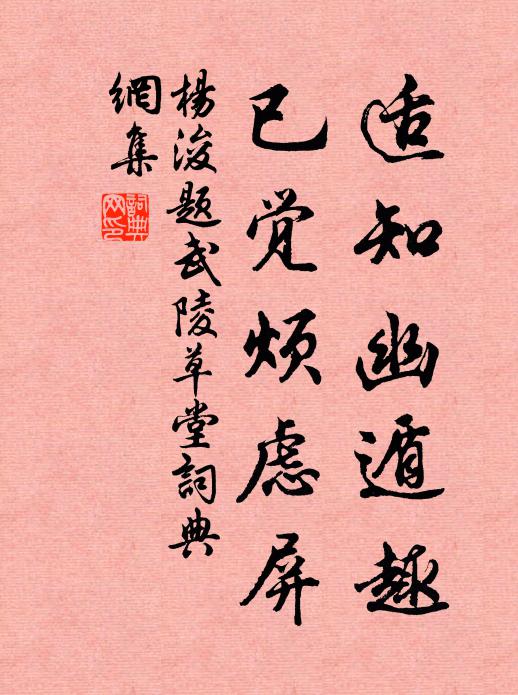 适知幽遁趣
已觉烦虑屏
楊浚题武陵草堂詞典
網集
詞典
网印